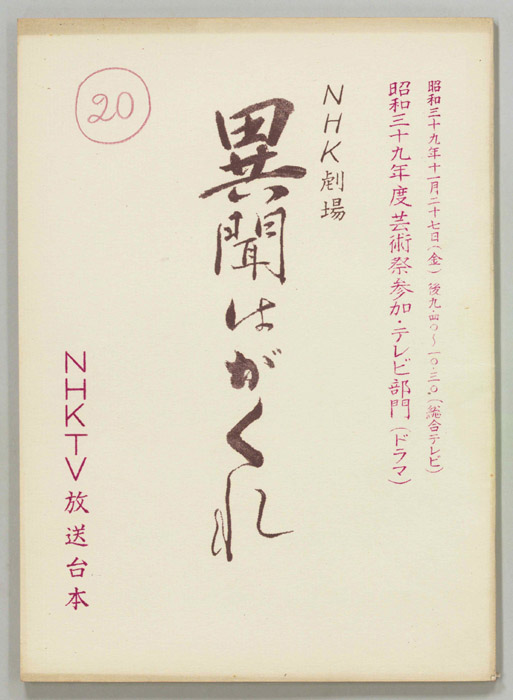 昭和三十九年十一月二十七日(金)後九・四〇〜一〇・三〇(総合テレビ)
昭和三十九年度芸術祭参加・テレビ部門(ドラマ)
NHK劇場
異聞はがくれ
20
NHKTV放送台本